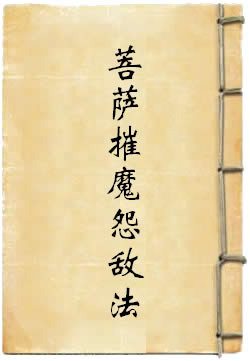 菩萨摧魔怨敌法